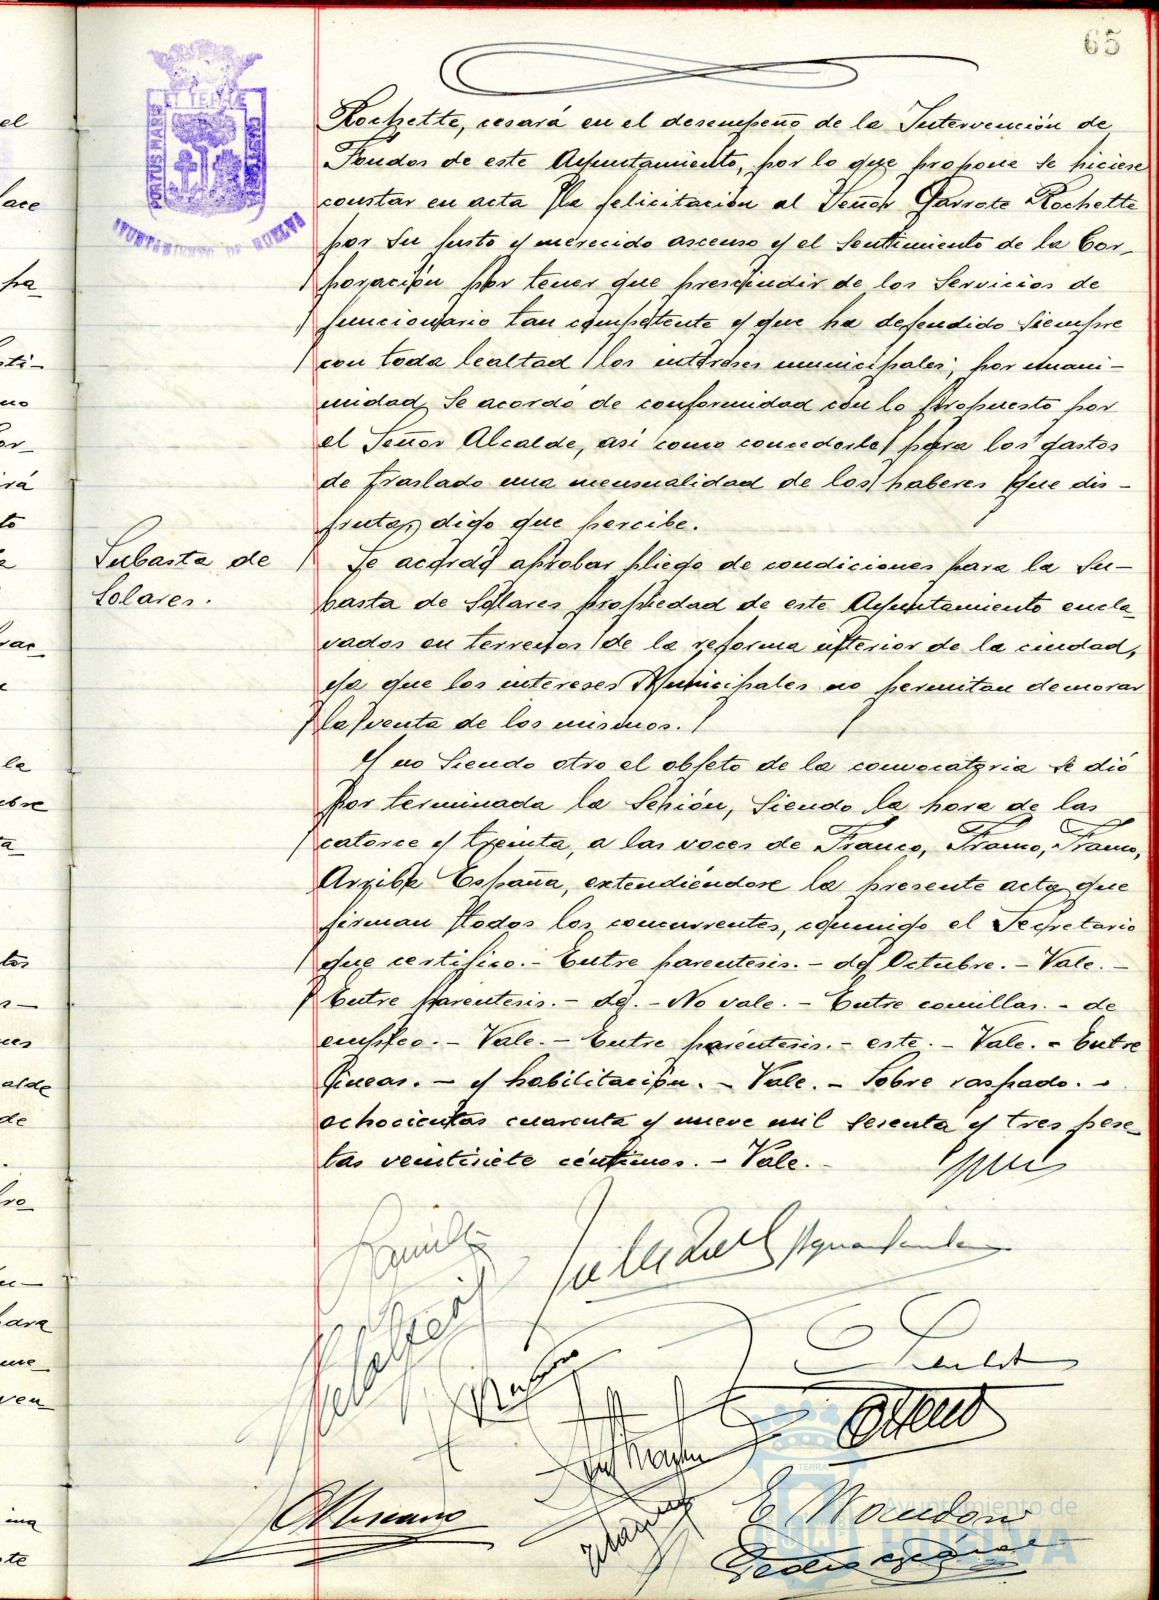 65
PORTUS MARIS ET TERRÆ CUSTODIA
AYUNTAMIENTO DE HUELVA
Rochette, cesará en el desempeño de la Intervención de
Fondos de este Ayuntamiento, por lo que propone se hiciese
constar en acta la felicitación al Señor Garrote Rochette
por su justo y merecido ascenso y el sentimiento de la Cor-
poración por tener que prescindir de los servicios de
funcionario tan competente y que ha defendido siempre
con toda lealtad los intereses municipales; por unani-
midad se acordó de conformidad con lo propuesto por
el Señor Alcalde, así como concederle para los gastos
de traslado una mensualidad de los haberes que dis-
fruta, digo que percibe.
Subasta de
Solares.
Se acordó aprobar pliego de condiciones para la su-
basta de Solares propiedad de este Ayuntamiento encla-
vados en terrenos de la reforma interior de la ciudad,
ya que los intereses Municipales no permitan demorar
la venta de los mismos.
Y no siendo otro el objeto de la convocatoria se dió
por terminada la sesión, siendo la hora de las
catorce y treinta, a las voces de Franco, Franco, Franco,
Arriba España, extendiéndose la presente acta que
firman todos los concurrentes, conmigo el Secretario
que certifico.- Entre parentesis.- de Octubre.- Vale.-
Entre paréntesis.- de.- No vale.- Entre comillas.- de
empleo.- Vale.- Entre paréntesis.- este.- Vale.- Entre
líneas.- y habilitación.- Vale.- Sobre raspado.-
ochocientas cuarenta y nueve mil sesenta y tres pese-
tas veintisiete céntimos.- Vale.-
Ayuntamiento de
HUELVA